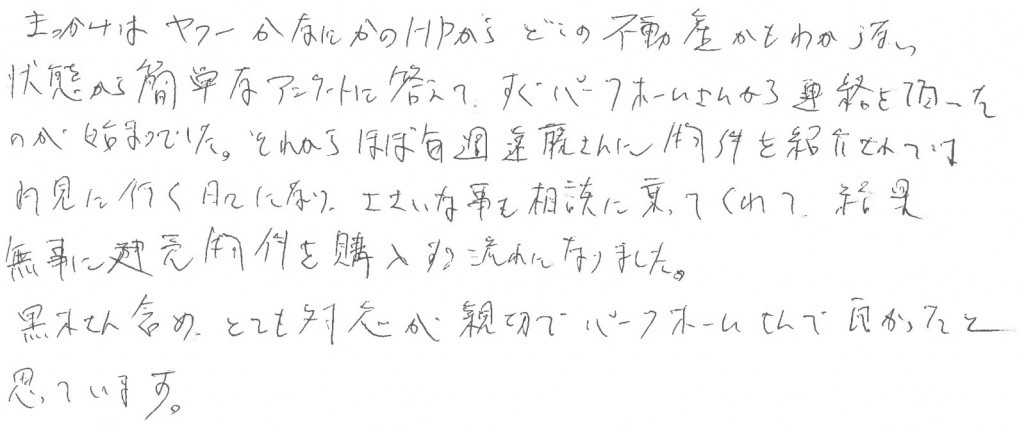 きっかけは ヤフーかなにかのHPから どこの不動産かもわからない
状態から簡単なアンケートに答えて、すぐパークホームさんから連絡を頂いた
のが始まりでした。それからほぼ毎週遠藤さんに物件を紹介されては
内見に行く月になり、ささいな事も相談に乗ってくれて、結果
無事に建売物件を購入する流れになりました。
黒木さん含め、とても対応が親切でパークホームさんで良かったと
思っています。